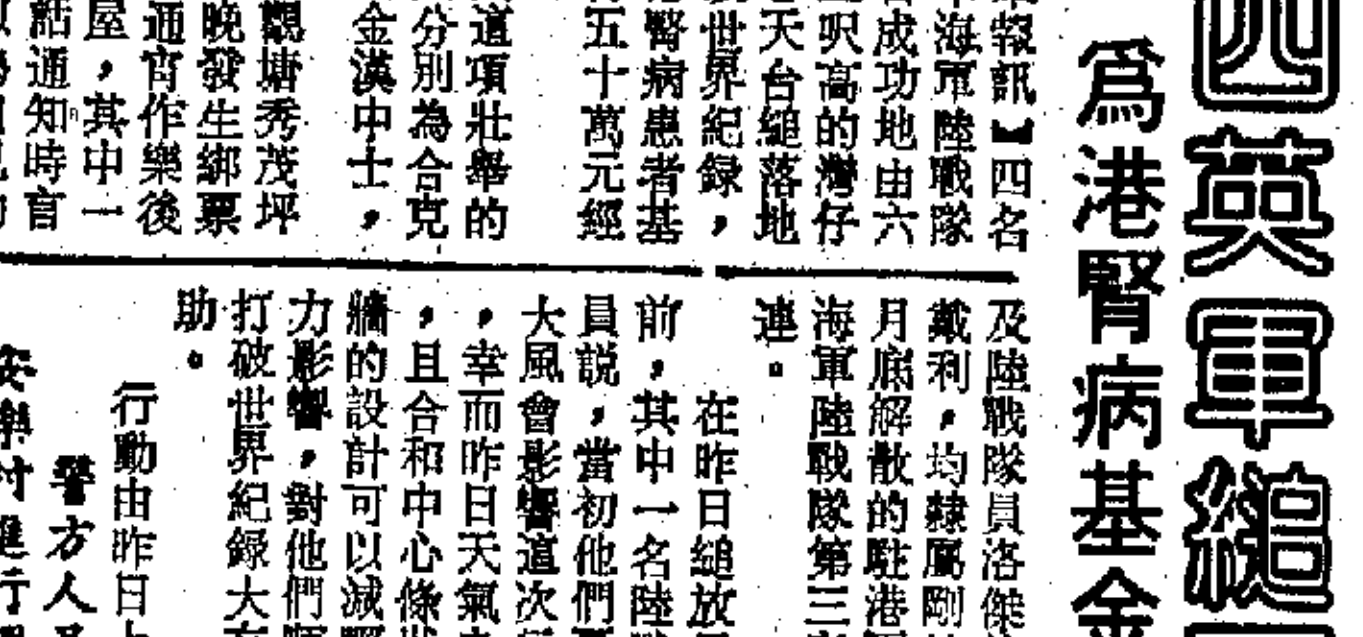 四英軍縋
爲港腎病基金
報訊】四名
海軍陸戰隊
成功地由六
呎高的灣仔
天台縋落地
世界紀録，
腎病患者基
五十萬元經
道項壯舉的
分別為合克
金漢中士，
觀塘秀茂坪
晚發生綁票
通宵作樂後
屋，其中一
話通知時言
及陸戰隊員洛傑
戴利，均隸屬剛
月底解散的駐港
海軍陸戰隊第三
連。
在昨日縋放
前，其中一名陸
員説，當初他們
大風會影響這次
，幸而昨日天氣
，且合和中心條
牆的設計可以減
力影響，對他們
打破世界紀録大
助。
行動由昨日
警方人
安樂村進行